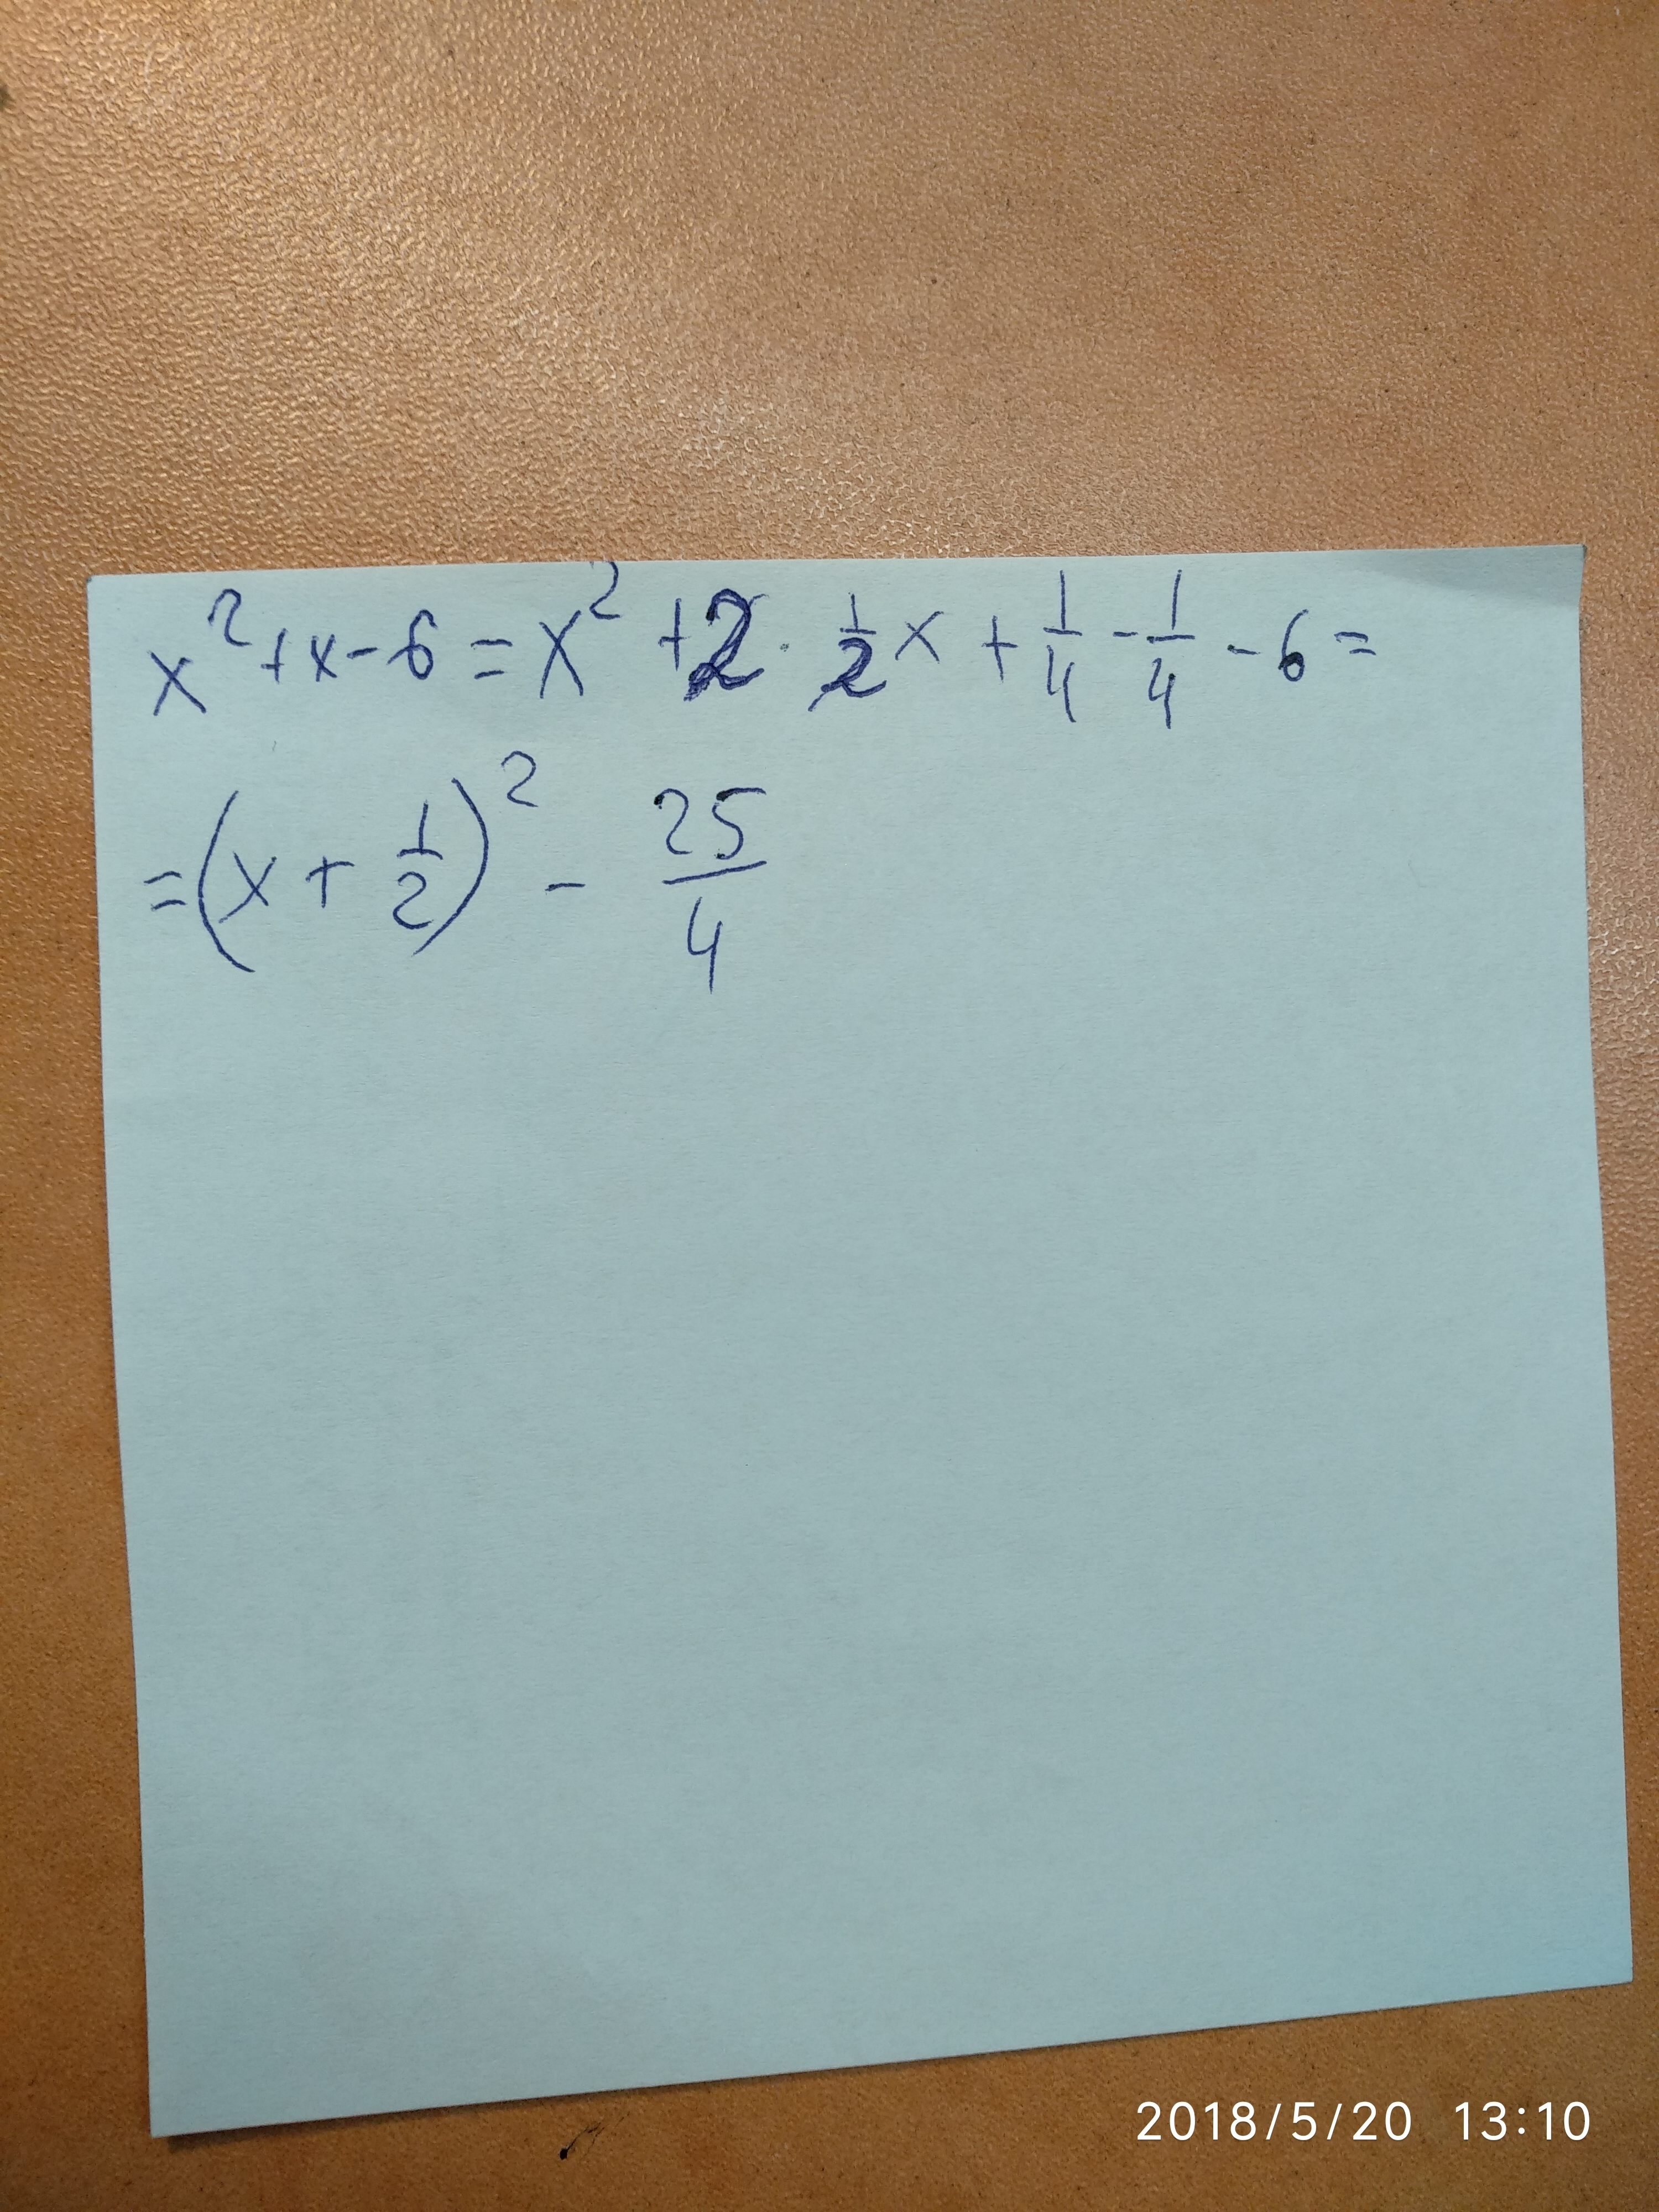 x² + x - 6 = x² + 2 · 1/2 x + 1/4 - 1/4 - 6 =
= (x + 1/2)² - 25/4
2018/5/20 13:10